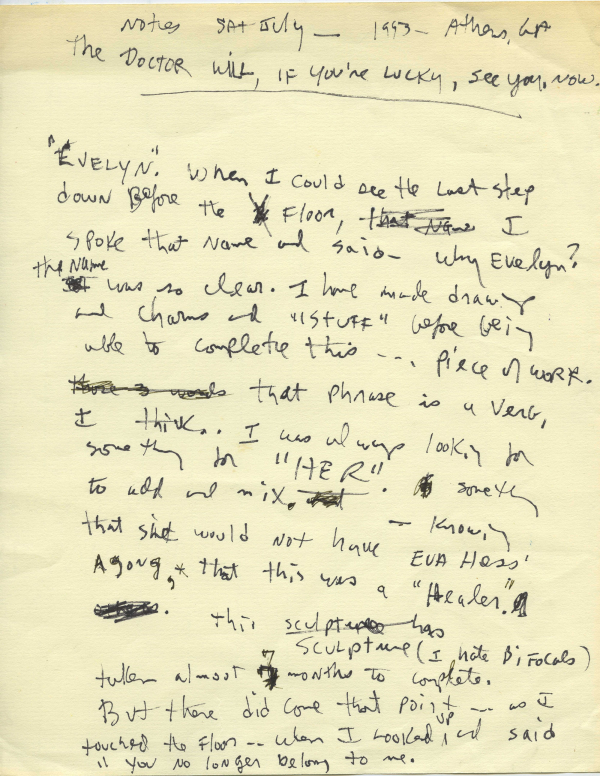 Notes Sat July — 1993 — Athens, GA
The Doctor Will, If You're Lucky, see you, now.
"Evelyn". When I could see the last step
down Before the Floor, that Name I
spoke that Name and said— Why Evelyn?
the Name
was so clear. I have made drawings
and charms and "STUFF" before being
able to complete this --- Piece of work.
those 3 words that phrase is a Verb,
I think.. I was always looking for
something for "HER"
to add and mix. and . something
that she would not have — knowing
Eva Hess'
Agony,* that this was a "Healer."
this sculpture has
Sculpture (I hate Bifocals)
taken almost 7 months to complete.
But there did come that point --- as I
touched the Floor -- when I looked up and said
"you no longer belong to me.